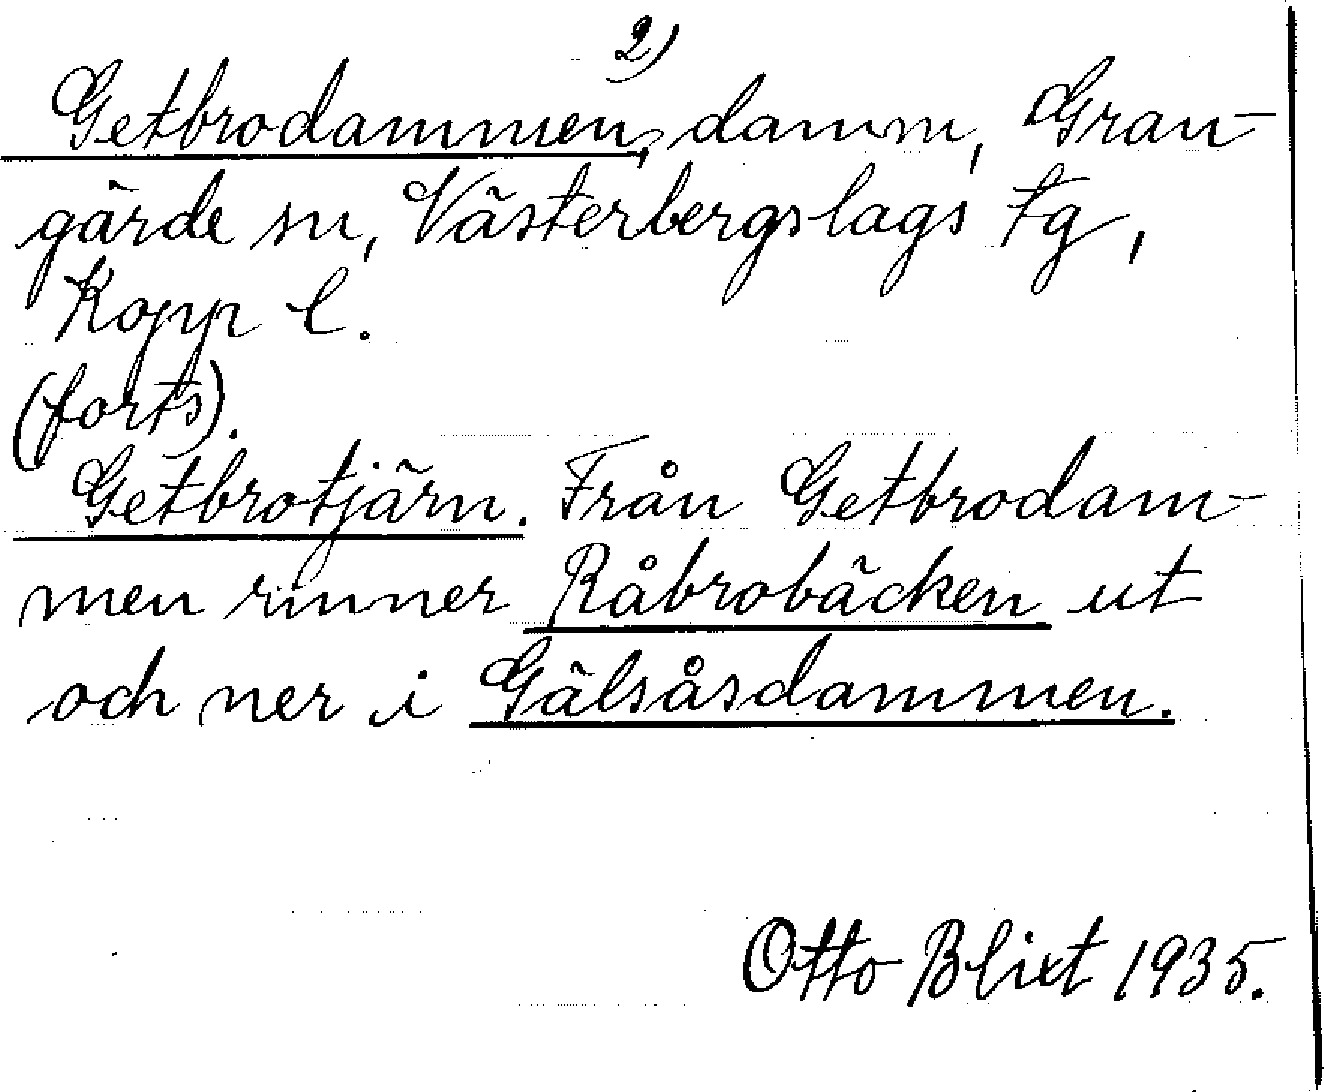 2)
Getbrodammen, damm, Gran-
gärde sn, Västerbergslags tg,
Kopp l.
(forts).
Getbrotjärn. Från Getbrodam-
men rinner Råbrobäcken ut
och ner i Gälsåsdammen.
Otto Blixt 1935.